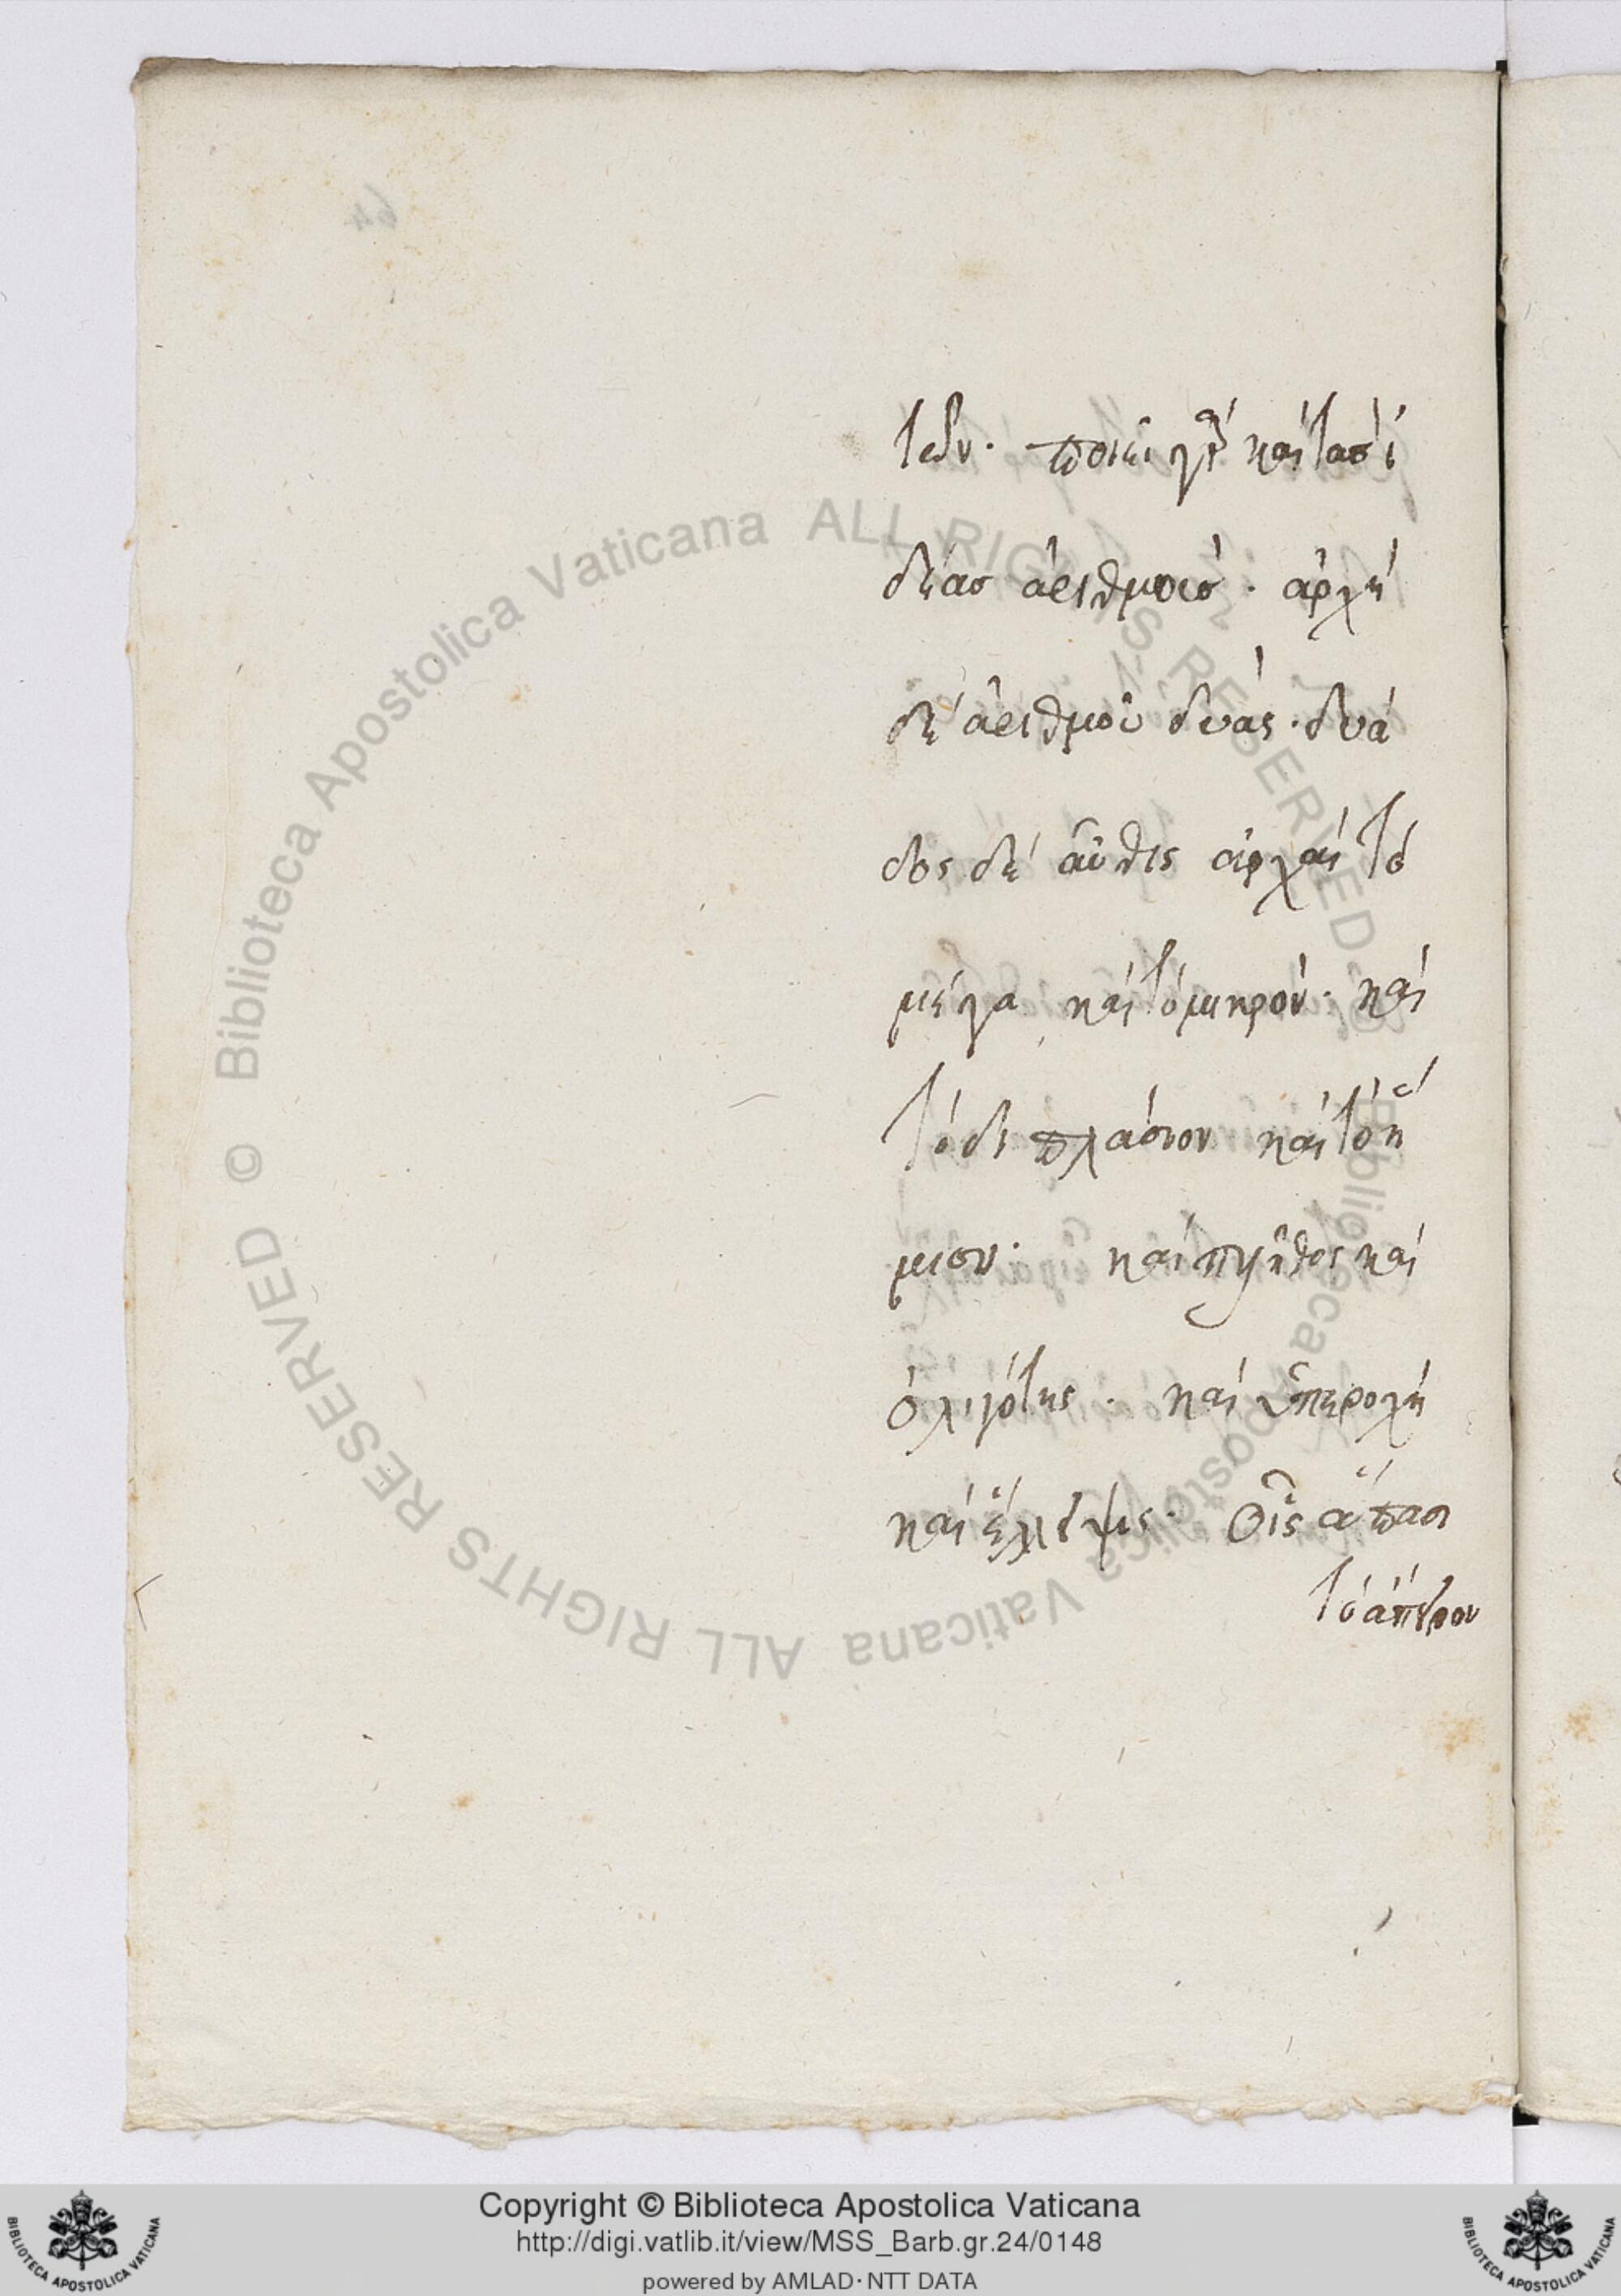 τεον. ποιεῖ γὰρ καὶ τὰσ ἰ
δέασ ἀριθμοὺσ. ἀρχὴ
δὲ ἀριθμοῦ δυὰς. δυά
δος δὲ αὖθις ἀρχαὶ τὸ
μέγα καὶ τὸ μικρον. καὶ
τὸ διπλάσιον καὶ τὸ ἥ
μισυ. καὶ πλῆθος καὶ
ὀλιγότης. καὶ ὑπεροχὴ
καὶ ἔλλειψις. οἷς ἅπασι
τὸ ἄπειρον
Biblioteca Apostolica Vaticana ALL RIGHTS RESERVED ©
Biblioteca Apostolica Vaticana ALL RIGHTS RESERVED
Copyright © Biblioteca Apostolica Vaticana
http://digi.vatlib.it/view/MSS_Barb.gr.24/0148
powered by AMLAD·NTT DATA
BIBLIOTECA APOSTOLICA VATICANA
BIBLIOTECA APOSTOLICA VATICANA